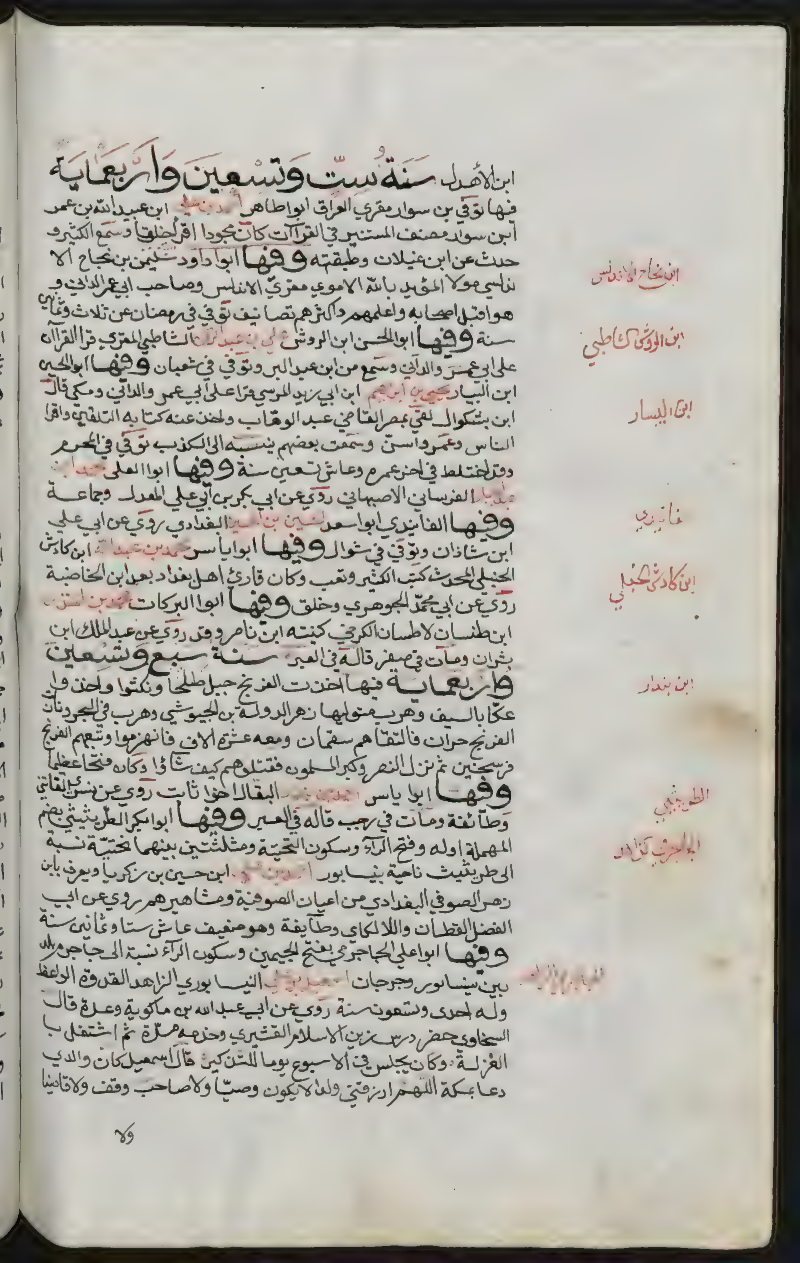 ابن الأهدل سنة ست وتسعين وأربعماية
فيها توفي بن سوار مقري العراق ابو اطاهر احمد بن علي ابن عبيد الله بن عمر
ابن سوار مصنف المستنير في القراآت كان مجودا اقرأ خلقا وسمع الكثير و
حدث عن ابن غيلان وطبقته وفيها ابوا داود سليمن بن نجاح الا
ندلسي مولا المؤيد بالله الاموي مقري الاندلس وصاحب ابي عمر الداني و
هو اقبل اصحابه واعلمهم واكثرهم تصانيف توفي في رمضان عن ثلاث وثمانين
سنة وفيها ابو الحسن ابن الروش علي بن عبد الرحمن الشاطبي المقري قرا القرآن
على ابي عمر والداني وسمع من ابن عبد البر وتوفي في شعبان وفيها ابو الحسين
ابن البيار يحيى بن ابرهيم ابن ابي زيد المرسي قرا على ابي عمر والداني ومكي قال
ابن بشكوال لقي بمصر القاضي عبد الوهاب واخذ عنه كتابه التلقين واقرا
الناس وعمر واسن وسمعت بعضهم ينسبه الى الكذب توفي في المحرم
وقد اختلط في اخر عمره وعاش تسعين سنة وفيها ابوا العلى
الفرساني الاصبهاني روي عن ابي بكر بن ابي علي المعدل وجماعة
وفيها الفانيدي ابوا سعد الحسين بن الحسين البغدادي روي عن ابي علي
ابن شاذان وتوفي في شوال وفيها ابوا ياسر محمد بن عبيد الله ابن كادش
الحنبلي المحدث كتب الكثير وتعب وكان قاري اهل بغداد بعد ابن الخاضبة
روي عن ابي محمد الجوهري وخلق وفيها ابوا البركات محمد بن المنذر
ابن طنسان لاطسان الكرخي كنيته ابن ناصر وقد روي عن عبد الملك ابن
بشران ومات في صفر قاله في العبر سنة سبع وتسعين
واربعماية فيها اخذت الفرنج جبيل صلحا ونكثوا واخذوا
عكا بالسيف وهرب متوليها زهر الدولة بن الجيوشي وهرب في البحر ونازل
الفرنج حران فالتقاهم سقمان ومعه عشرة الاف فانهزموا وتبعهم الفرنج
فرسخين ثم نزل النصر وكبر المسلمون فقتلوهم كيف شاؤا وكان فتحا عظيما
وفيها ابوا ياسر احمد بن بندار البقال اخوا ثابت روي عن بشرى الفاتني
وطائفة ومات في رجب قاله في العبر وفيها ابوا بكر الطريثيثي بضم
المهملة اوله وفتح الرآء وسكون التحتية ومثلثتين بينهما تحتية نسبة
الى طريثيث ناحية بنيسابور احمد بن علي ابن حسين بن زكريا ويعرف بابن
زهر الصوفي البغدادي من اعيان الصوفية ومشاهيرهم روي عن ابي
الفضل القطان واللالكاي وطائفة وهو ضعيف عاش ستا وثمانين سنة
وفيها ابوا علي الجاجرمي بفتح الجيمين وسكون الرآء نسبة الى جاجرم بلد
بين نيسابور وجرجان اسمعيل بن علي النيسابوري الزاهد القدوة الواعظ
وله احدى وتسعون سنة روي عن ابي عبد الله بن ماكوية وعدة قال
السخاوي حضر درس زين الاسلام القشيري وخدمه مدة ثم اشتغل با
العزلة وكان يجلس في الاسبوع يوما للتذكير قال اسمعيل كان والدي
دعا بمكة اللهم ارزقني ولدا لا يكون وصيا ولا صاحب وقف ولا قاضيا
ولا
ابن نجاح الاندلسي
بن الروش الشاطبي
ابن اليسار
فانيدي
ابن كادش الحنبلي
ابن بندار
الطريثيثي